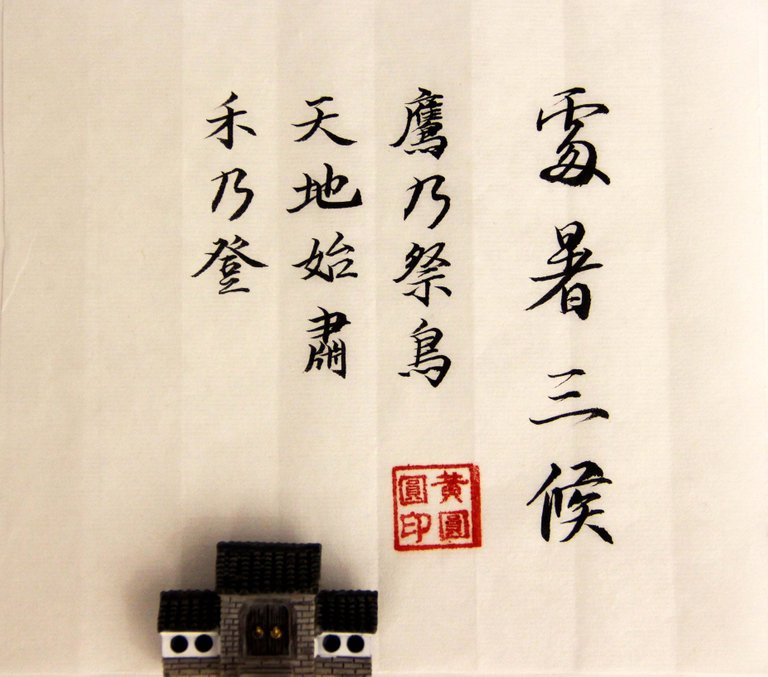 處暑三候
鷹乃祭鳥
天地始肅
禾乃登
黃圓
圓印